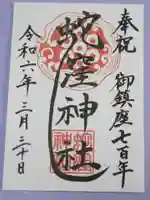 奉祝 御鎮座七百年
蛇窪神社
令和六年 三月 三十日